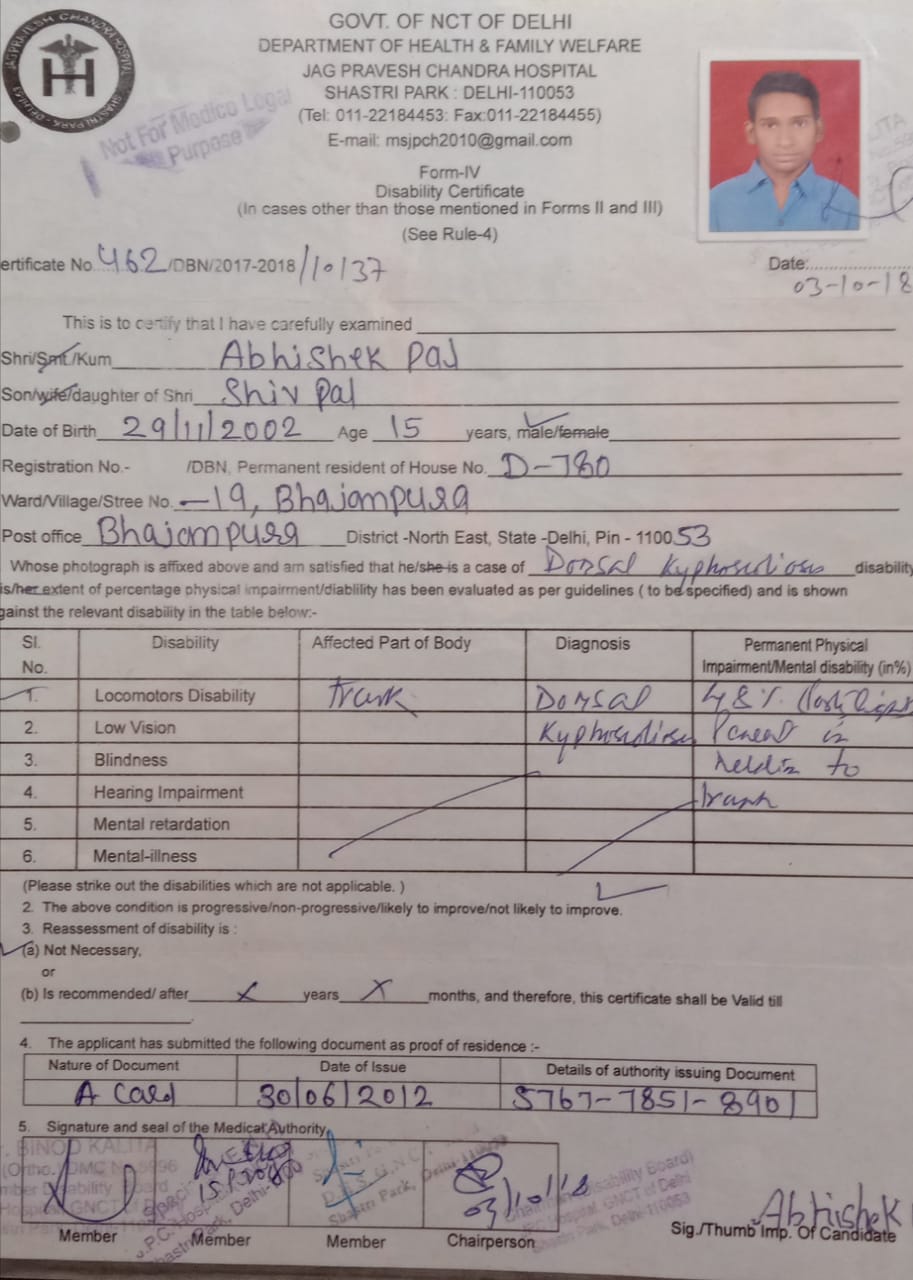 JAG PRAVESH CHANDRA HOSPITAL
SHASTRI PARK - DELHI-53
GOVT. OF NCT OF DELHI
DEPARTMENT OF HEALTH & FAMILY WELFARE
JAG PRAVESH CHANDRA HOSPITAL
SHASTRI PARK : DELHI-110053
(Tel: 011-22184453: Fax:011-22184455)
E-mail: msjpch2010@gmail.com
Not For Medico Legal
Purpose
Form-IV
Disability Certificate
(In cases other than those mentioned in Forms II and III)
(See Rule-4)
ertificate No. 462/DBN/2017-2018/10137
Date:
03-10-18
This is to certify that I have carefully examined
Shri/Smt./Kum Abhishek Pal
Son/wife/daughter of Shri Shiv Pal
Date of Birth 29/11/2002 Age 15 years, male/female
Registration No.- /DBN, Permanent resident of House No. D-780
Ward/Village/Stree No. -19, Bhajampura
Post office Bhajampura District -North East, State -Delhi, Pin - 110053
Whose photograph is affixed above and am satisfied that he/she is a case of Dorsal Kyphoscoliosis disability
is/her extent of percentage physical impairment/diablility has been evaluated as per guidelines ( to be specified) and is shown
gainst the relevant disability in the table below:-
Sl. No. Disability Affected Part of Body Diagnosis Permanent Physical Impairment/Mental disability (in%)
1. Locomotors Disability Trunk Dorsal 48%
2. Low Vision Kyphoscoliosis in
3. Blindness to
4. Hearing Impairment trunk
5. Mental retardation
6. Mental-illness
(Please strike out the disabilities which are not applicable. )
2. The above condition is progressive/non-progressive/likely to improve/not likely to improve.
3. Reassessment of disability is :
(a) Not Necessary,
or
(b) Is recommended/ after x years x months, and therefore, this certificate shall be Valid till
4. The applicant has submitted the following document as proof of residence :-
Nature of Document Date of Issue Details of authority issuing Document
A Card 30/06/2012 5767-7851-8901
5. Signature and seal of the Medical Authority,
BINOD KALITA
(Ortho.) DMC
Disability Board
Shastri Park, Delhi
03/10/18
Disability Board)
Hospital GNCT of Delhi
Shastri Park, Delhi-110053
Member Member Member Chairperson
Abhishek
Sig./Thumb Imp. Of Candidate